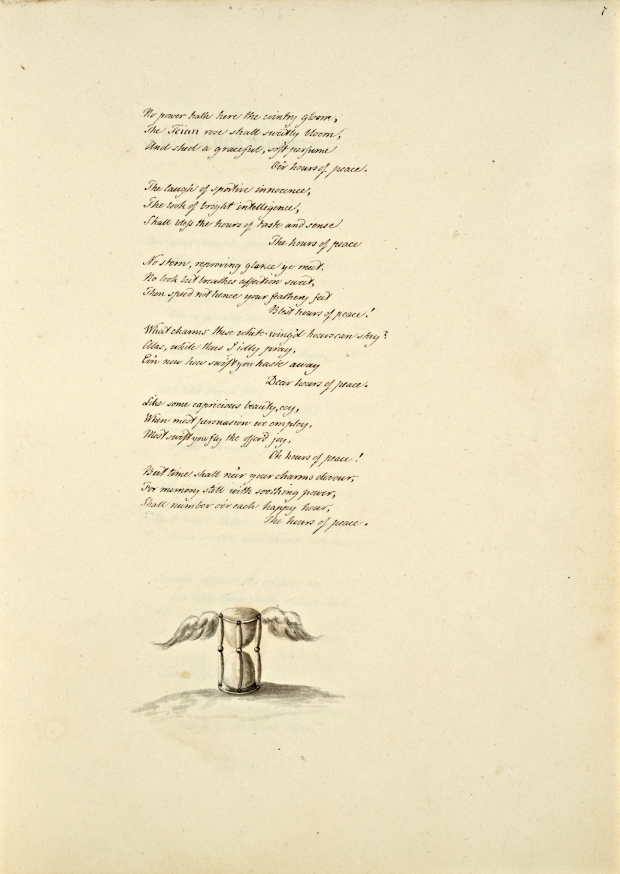 7
No power hath here the wintry gloom,
The Teian rose shall sweetly bloom,
And shed a graceful, soft perfume
O'er hours of peace.
The laugh of sportive innocence,
The look of bright intelligence,
Shall bless the hours of taste and sense
The hours of peace
No stern, reproving glance ye meet.
No look but breathes affection sweet,
Then speed not hence your feathery feet
Blest hours of peace!
What charms these white-wing'd hours can stay?
Alas, while thus I idly pray,
E'en now how swift you haste away
Dear hours of peace.
Like some capricious beauty, coy,
When most persuasion we employ,
Most swift you fly the offer'd joy.
Oh hours of peace!
But time shall ne'er your charms devour,
For memory still with soothing power,
Shall number o'er each happy hour,
The hours of peace.